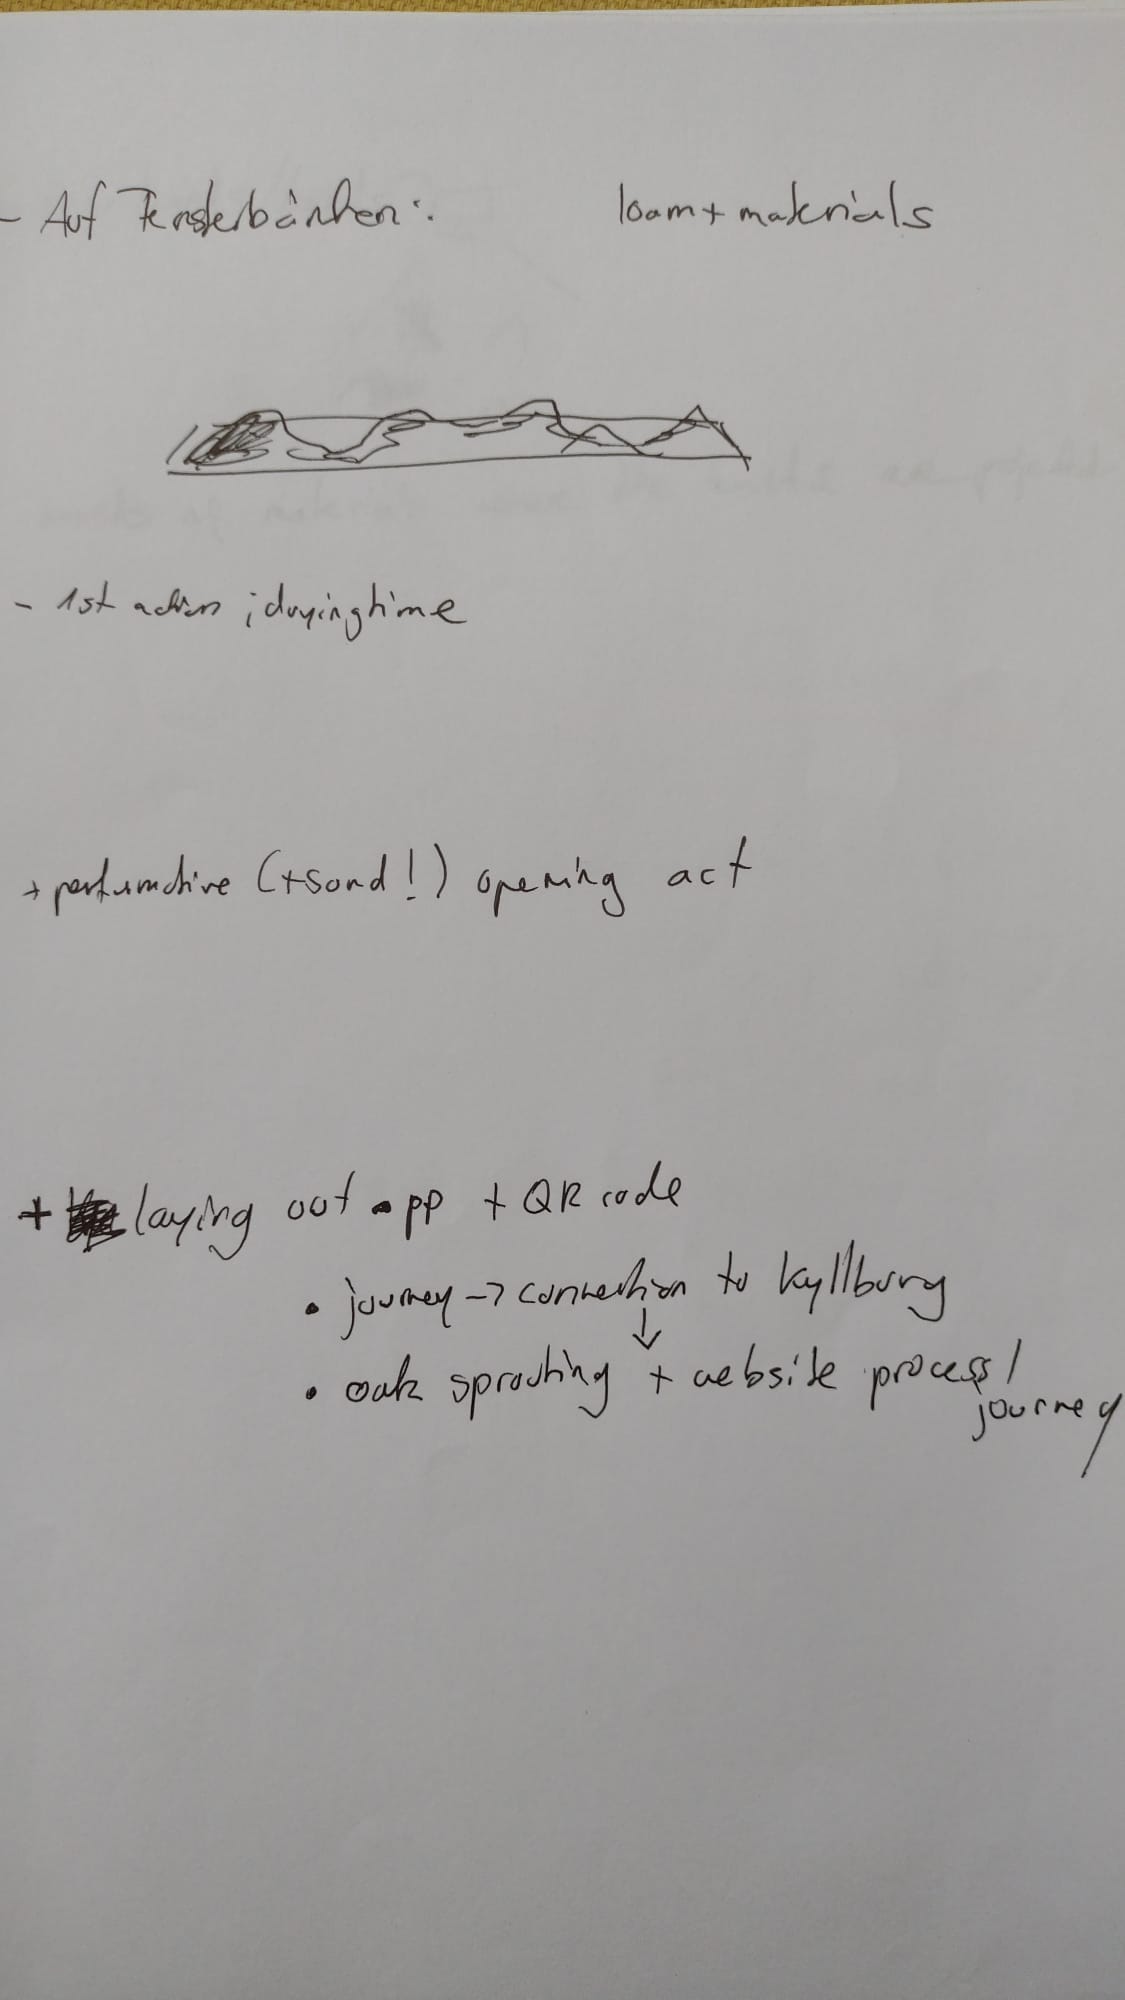 - Auf Fensterbänken: loam + materials
- 1st action ; dryingtime
+ performative (+sond!) opening act
+ laying out app + QR code
• journey -> connection to Kyllburg
↓
• oak sprouting + website process/
journey